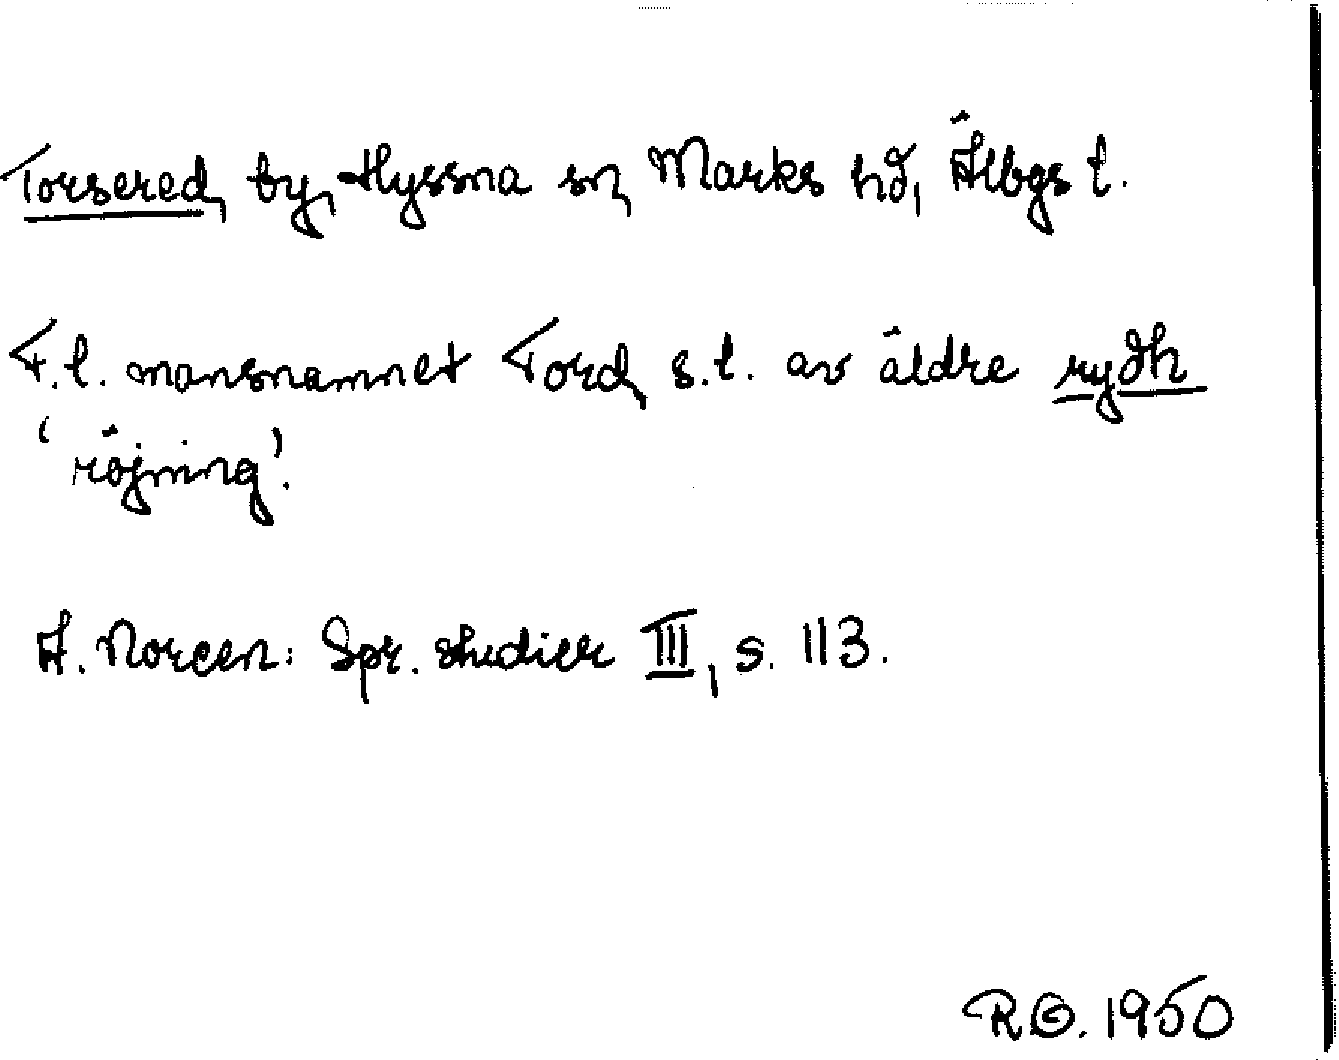 Torsered, by, Hyssna sn, Marks hd, Älbgs l.
F.l. mansnamnet Tord, s.l. av äldre rydh
'röjning'.
A. Noreen: Spr. studier III, s. 113.
RG. 1950